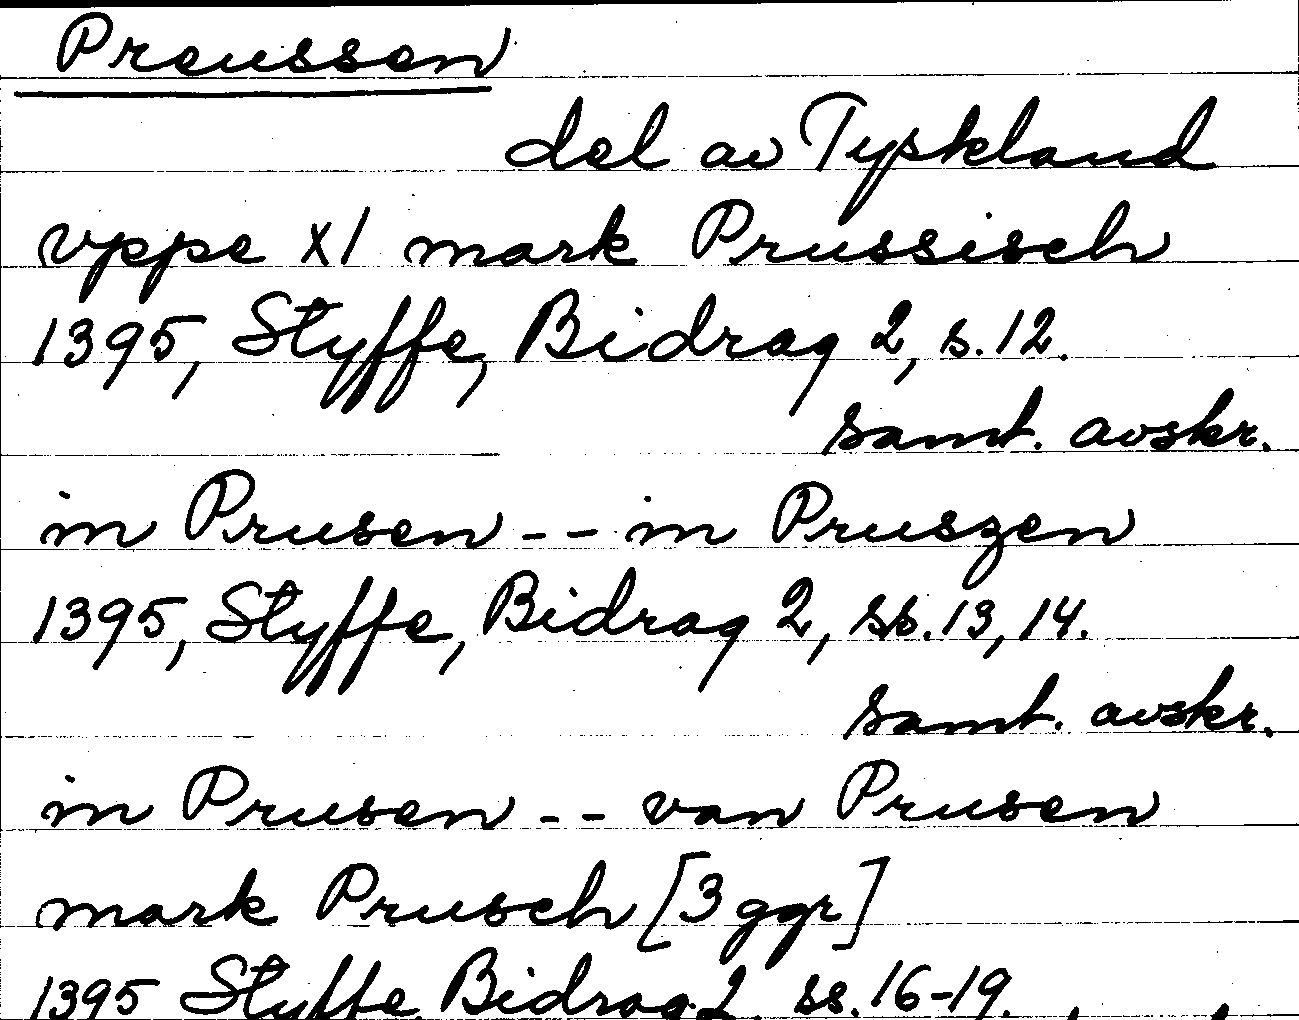 Preussen
del av Tyskland
vppe XI mark Prussisch
1395, Styffe, Bidrag 2, s. 12.
samt. avskr.
in Prusen -- in Pruszen
1395, Styffe, Bidrag 2, ss. 13, 14.
samt. avskr.
in Prusen -- van Prusen
mark Prusch [3 ggr]
1395 Styffe Bidrag 2 ss. 16-19.